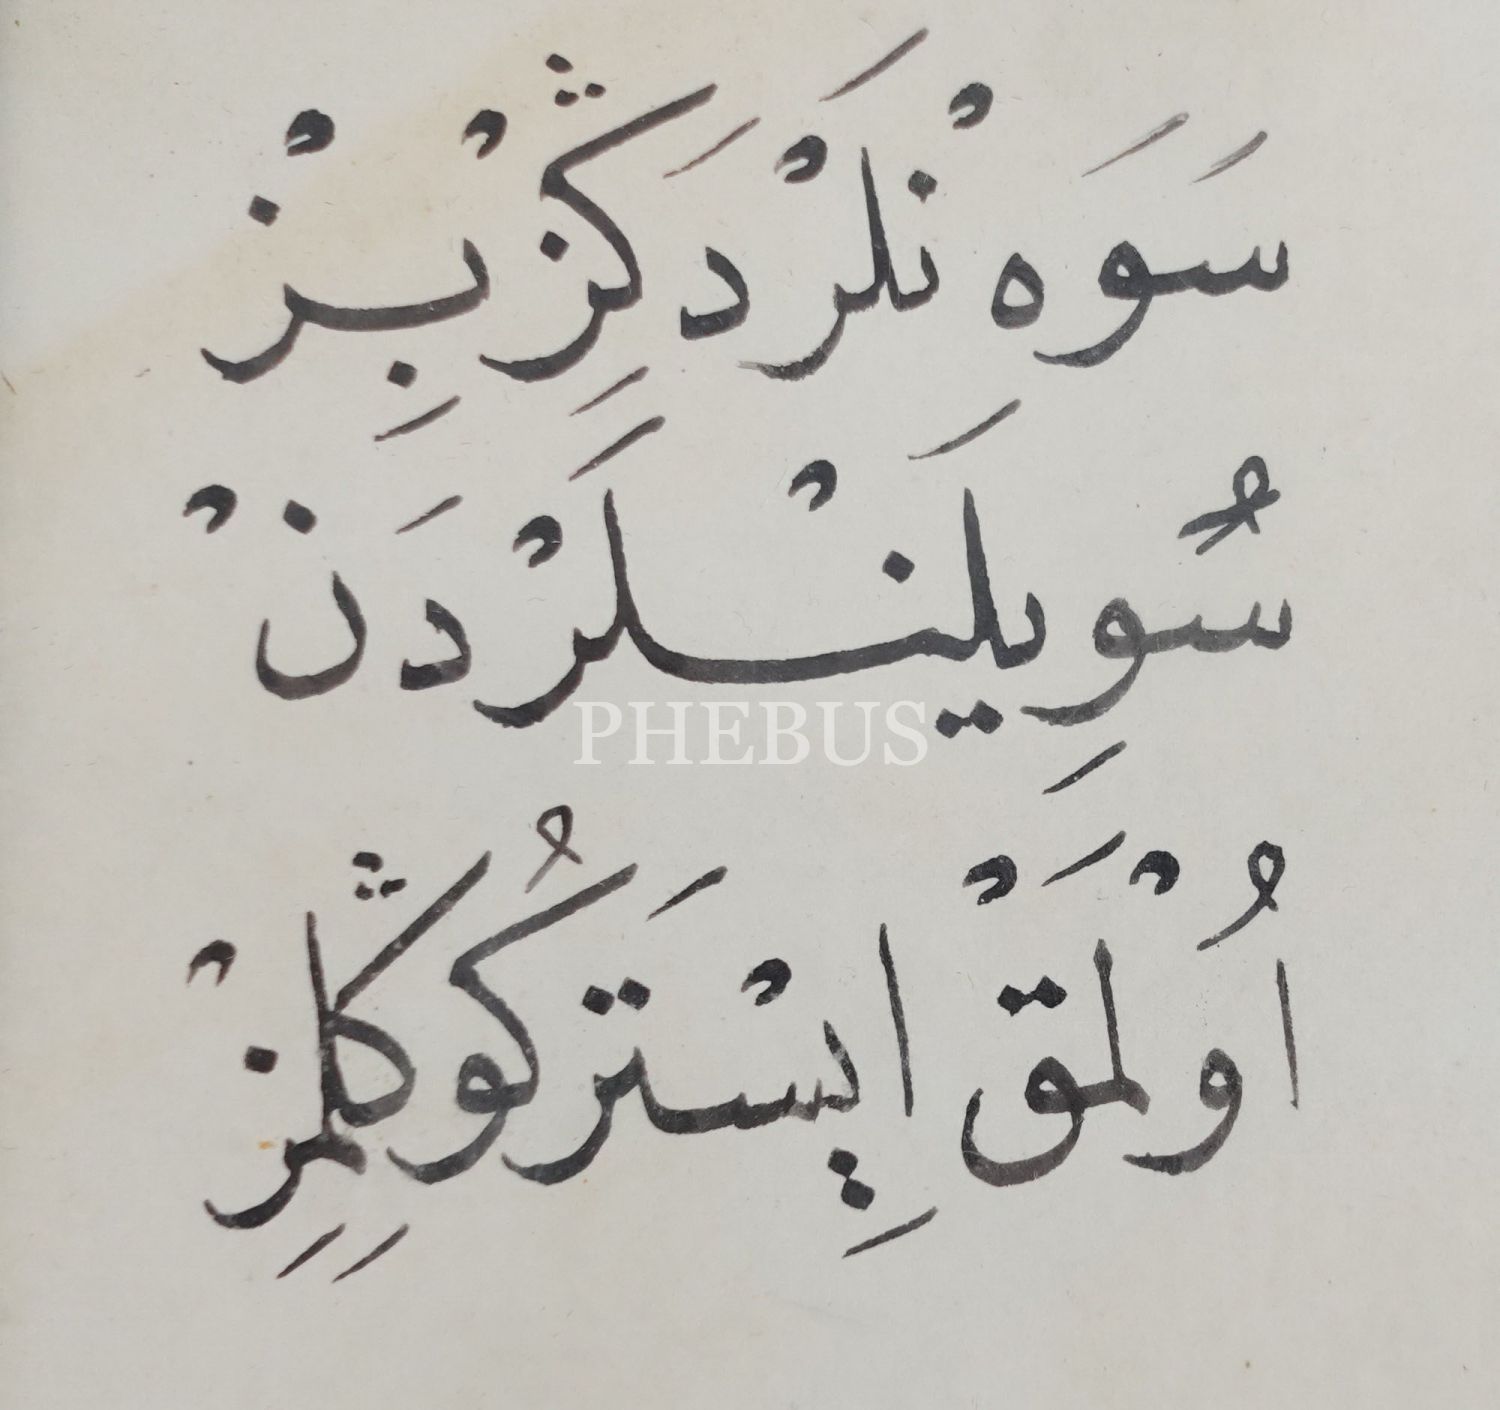 سَوَه نْلَرْدَ ڭِزْ بِزْ
سُوِيلَنْلَرْدَنْ
اُوْلمَقْ اِيسْتَر كُوڭلِمِزْ
PHEBUS